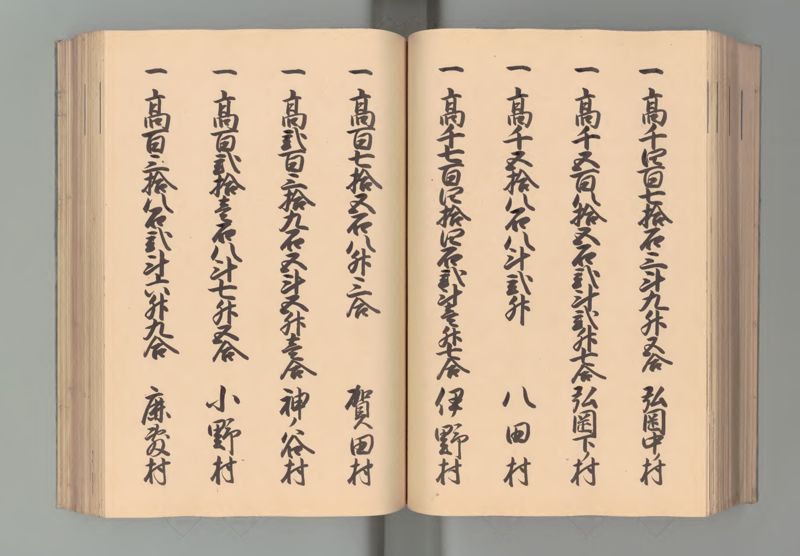 一高千四百七拾石三斗九升五合 弘岡中村
一高千五百八拾五石弐斗弐升七合 弘岡下村
一高千五拾八石八斗弐升 八田村
一高千七百四拾四石弐斗壱升七合 伊野村
一高百七拾五石八升三合 賀田村
一高弐百三拾九石五斗五升壱合 神ノ谷村
一高百弐拾壱石八斗七升五合 小野村
一高百三拾八石弐斗六升九合 村